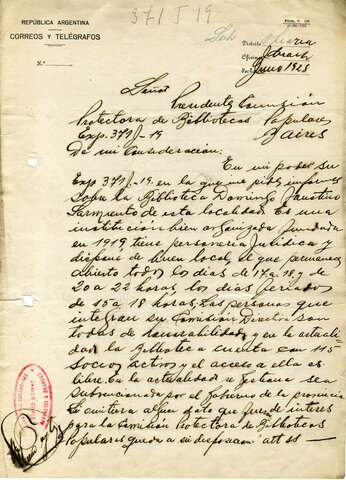 371 J 19
REPÚBLICA ARGENTINA
CORREOS Y TELÉGRAFOS
N.º
Distrito
Oficina
Fecha Junio 1925
Señor
Presidente Comisión
Protectora de Bibliotecas Populares
Exp. 371 J-19. B aires
De mi Consideración:
En mi poder su
Exp 371 J-19. en la que me pide informes
sobre la Biblioteca Domingo Faustino
Sarmiento de esta localidad. Es una
institución bien organizada fundada
en 1919 tiene personería Jurídica y
dispone de buen local, el que permanece
abierto todos los dias de 17 a 18 y de
20 a 22 horas, los dias feriados
de 15 a 18 horas. Las personas que
integran su Comisión Directiva son
todas de honorabilidad y en la actuali-
dad la Biblioteca cuenta con 115
socios activos y el acceso a ella es
libre. En la actualidad se gestiona sea
subvencionada por el Gobierno de la provincia
Si existiera algun dato que fuera de interes
para la Comisión Protectora de Bibliotecas
Populares queda a su disposición att SS
CORREOS Y TELEGRAFOS